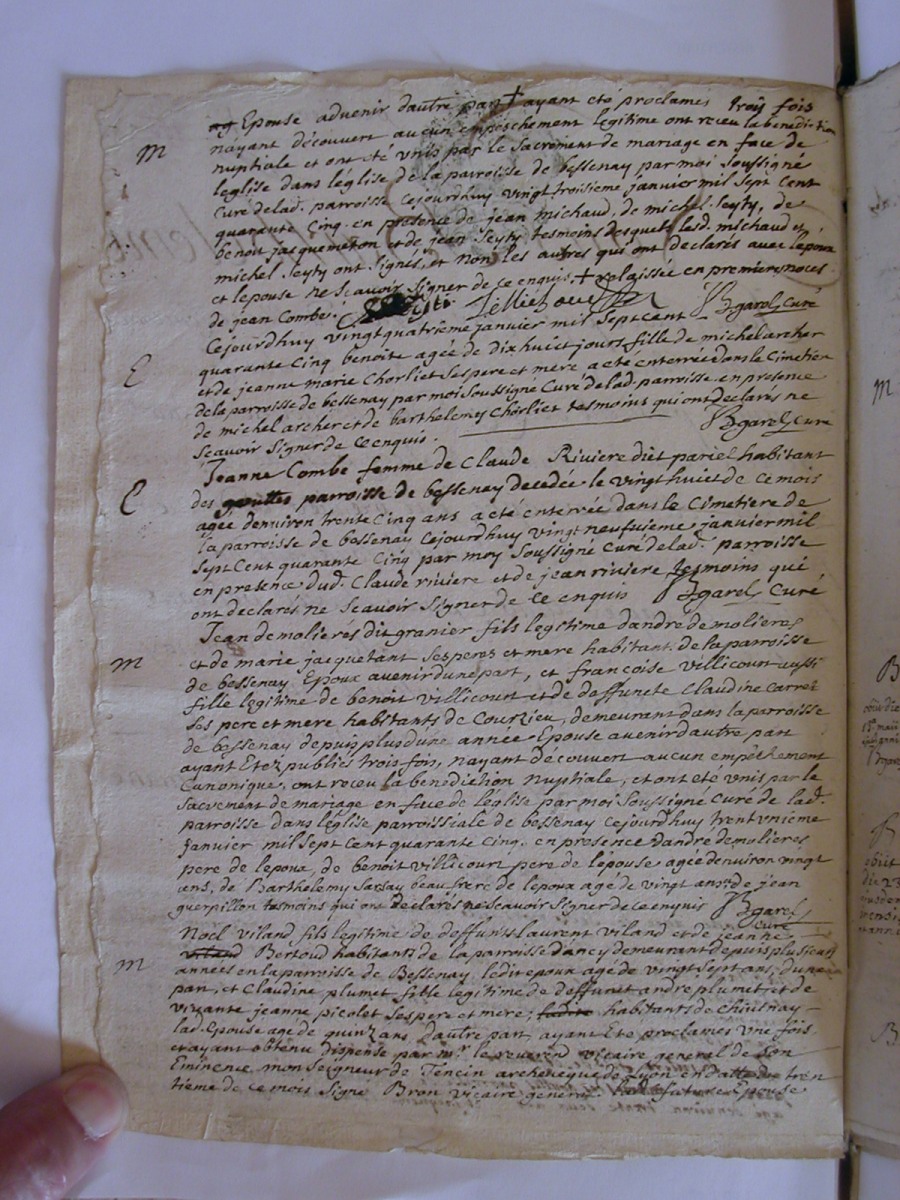 Epouse advenir dautre part + ayant eté proclamés troy fois
M
nayant découvert aucun empeschement legitime ont receu la benediction
nuptiale et ont été unis par le Sacrement de mariage en face de
leglise dans léglise de la parroisse de bessenay par moi Soussigné
Curé de lad. parroisse cejourdhuy vingt troisieme janvier mil Sept Cent
quarante Cinq en presence de jean michaud, de michel Seyty, de
benoit jacquemeton et de jean Seyty tesmoins desquels lesd. michaud et
michel Seyty ont Signés, et non les autres qui ont declarés avec lepoux
et lepouse ne Scavoir Signer de ce enquis + relaissée en premiers noces
de jean Combe. Bgarel Curé
E
Cejourdhuy vingt quatrieme janvier mil Sept Cent
quarante Cinq benoite agée de dix huit jours fille de michel archer
et de jeanne marie Chorliet Ses pere et mere a eté enterrée dans le Cimetiere
de la parroisse de bessenay par moi Soussigné Curé de lad. parroisse en presence
de michel archer et de barthelemy Chorliet tesmoins qui ont declarés ne
Scavoir Signer de ce enquis. Bgarel Curé
E
Jeanne Combe femme de Claude Riviere dit pariel habitant
des gouttes parroisse de bessenay decedée le vingt huit de ce mois
agée denviron trente Cinq ans a eté enterrée dans le Cimetiere de
la parroisse de bessenay Cejourdhuy vingt neufvieme janvier mil
Sept Cent quarante Cinq par moy Soussigné Curé de lad. parroisse
en presence dud. Claude riviere et de jean riviere tesmoins qui
ont declarés ne Scavoir Signer de Ce enquis Bgarel Curé
Jean demolieres dit granier fils legitime dandré demolieres
M
et de marie jacquetant Ses peres et mere habitants de la parroisse
de bessenay Epoux avenir dune part, et francoise Villicourt aussi
fille legitime de benoit Villicourt et de deffuncte Claudine Carret
Ses pere et mere habitants de Courzieu, demeurant dans la parroisse
de bessenay depuis plus dune année Epouse avenir dautre part
ayant Etez publiés trois fois, nayant découvert aucun empéchement
Canonique, ont receu la benediction Nuptiale, et ont été unis par le
Sacrement de mariage en face de léglise par moi Soussigné Curé de lad.
parroisse dans léglise parroissiale de bessenay Cejourdhuy trent unieme
janvier mil Sept Cent quarante Cinq. en presence dandré demolieres
pere de lepoux, de benoit villicourt pere de lépouse agée denviron vingt
ans, de Barthelemy Sarsay beaufrere de lepoux age de vingt ans, de jean
guerpillon tesmoins qui ont declarés ne Scavoir Signer de ce enquis Bgarel
curé
Noel Viland fils legitime de deffunts laurent Viland et de jeanne
M
viland Bertoud habitants de la parroisse dancy demeurant depuis plusieurs
années en la parroisse de Bessenay, ledit epoux agé de vingt Sept ans, dune
part, et Claudine plumet fille legitime de deffunct andre plumet, et de
vivante jeanne picolet Ses pere et mere, ladite habitants de
lad. Epouse age de quinz ans dautre part, ayant Eté proclamés une fois
et ayant obtenu dispense par mr. le reverend vicaire general de Son
Eminence monSeigneur de Tencin archeveque de Lyon en datte du tren
tieme de ce mois Signé Bron vicaire general lad. future Epouse